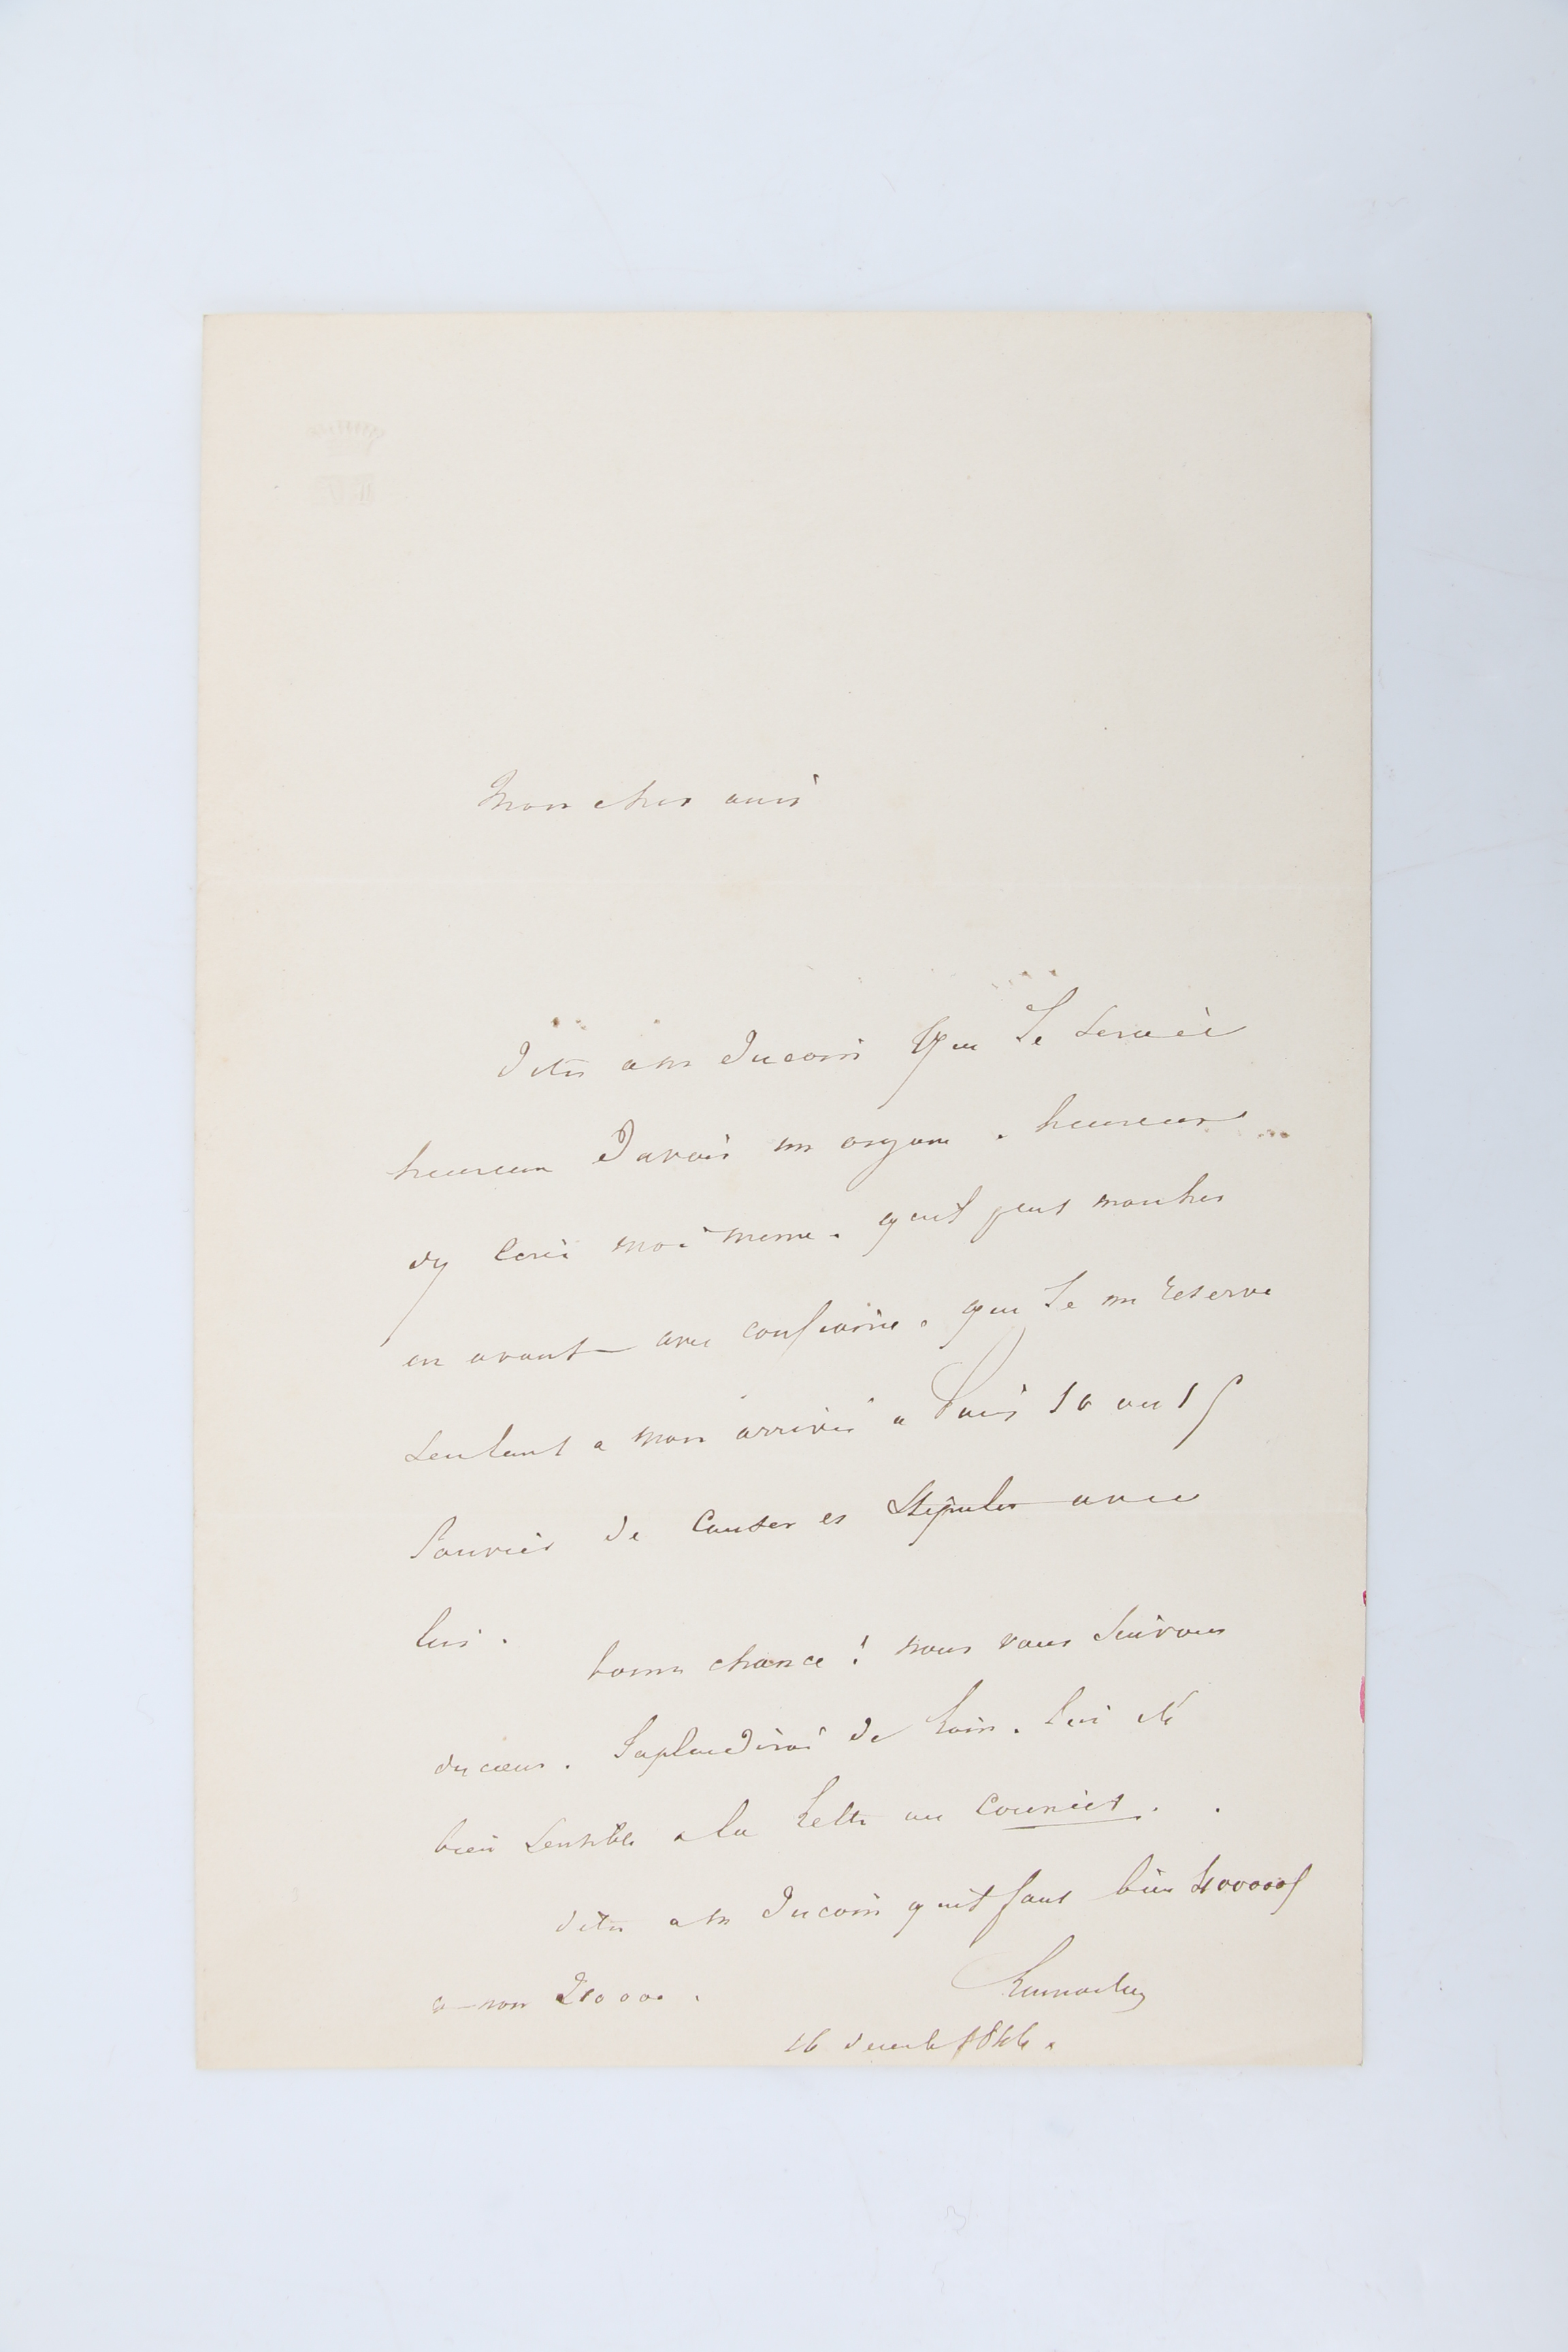 Mon cher ami
Dites a M Ducoin que Je serais
heureux D'avoir un organe. heureux
d'y ecrire moi meme. qu'il peut marcher
en avant avec confiance. que Je me reserve
seulement a mon arrivée a Paris 10 ou 15
Janvier de Causer et Stipuler avec
lui.
bonne chance! nous vous suivrons
du cœur. J'aplaudirai de Loin. J'ai été
bien sensible a la Lettre au Courrier.
dites a M Ducoin qu'il faut bien 400000f
a non 210000.
Lamartine
16 decembre 1844.